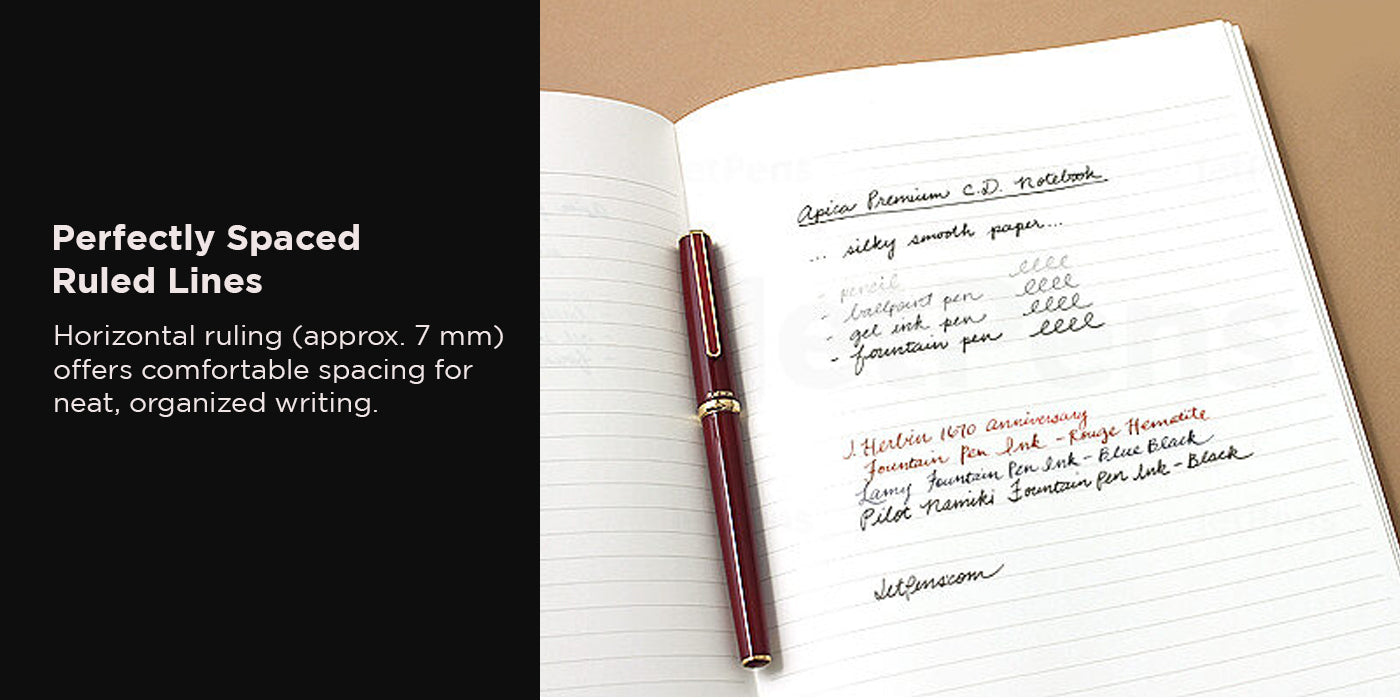 Perfectly Spaced
Ruled Lines
Horizontal ruling (approx. 7 mm)
offers comfortable spacing for
neat, organized writing.
Apica Premium C.D. Notebook
... silky smooth paper...
- pencil
- ballpoint pen
- gel ink pen
- fountain pen
J. Herbin 1670 anniversary
Fountain Pen Ink - Rouge Hematite
Lamy Fountain Pen Ink - Blue Black
Pilot Namiki Fountain Pen Ink - Black
JetPens.com